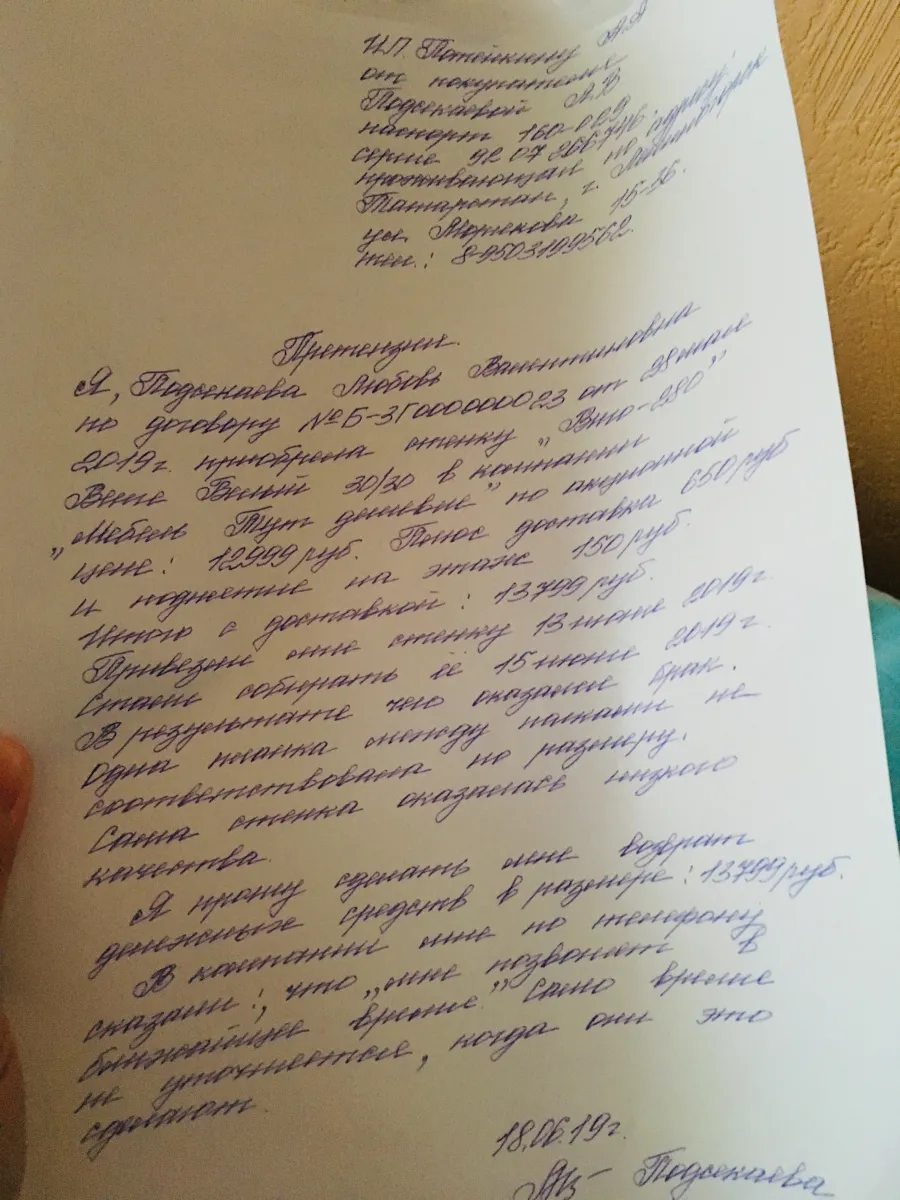 И.П. Потейкину А.А
от покупателя
Подсекаевой Л.В
паспорт 160-029
серия 92 07 266746.
проживающая по адресу:
Татарстан, г. Лениногорск
ул. Морякова 15-36.
тел.: 89503199562
Претензия.
Я, Подсекаева Любовь Валентиновна
по договору №Б-ЗГ0000000023 от 28 мая
2019г. приобрела стенку "Вто-280"
Венге Белый 30/30 в компании
"Мебель Тут дешевле" по акционной
цене: 12999 руб. Плюс доставка 650 руб
и поднятие на этаж 150 руб.
Итого с доставкой: 13799 руб.
Привезли мне стенку 13 июня 2019г.
Стали собирать её 15 июня 2019 г.
В результате чего оказался брак.
Одна планка между полками не
соответствовала по размеру.
Сама стенка оказалась низкого
качества.
Я прошу сделать мне возврат
денежных средств в размере: 13799 руб.
В компании мне по телефону
сказали:, что "мне позвонят в
ближайшее время" Само время
не уточняется, когда они это
сделают
18.06.19г.
Подсекаева